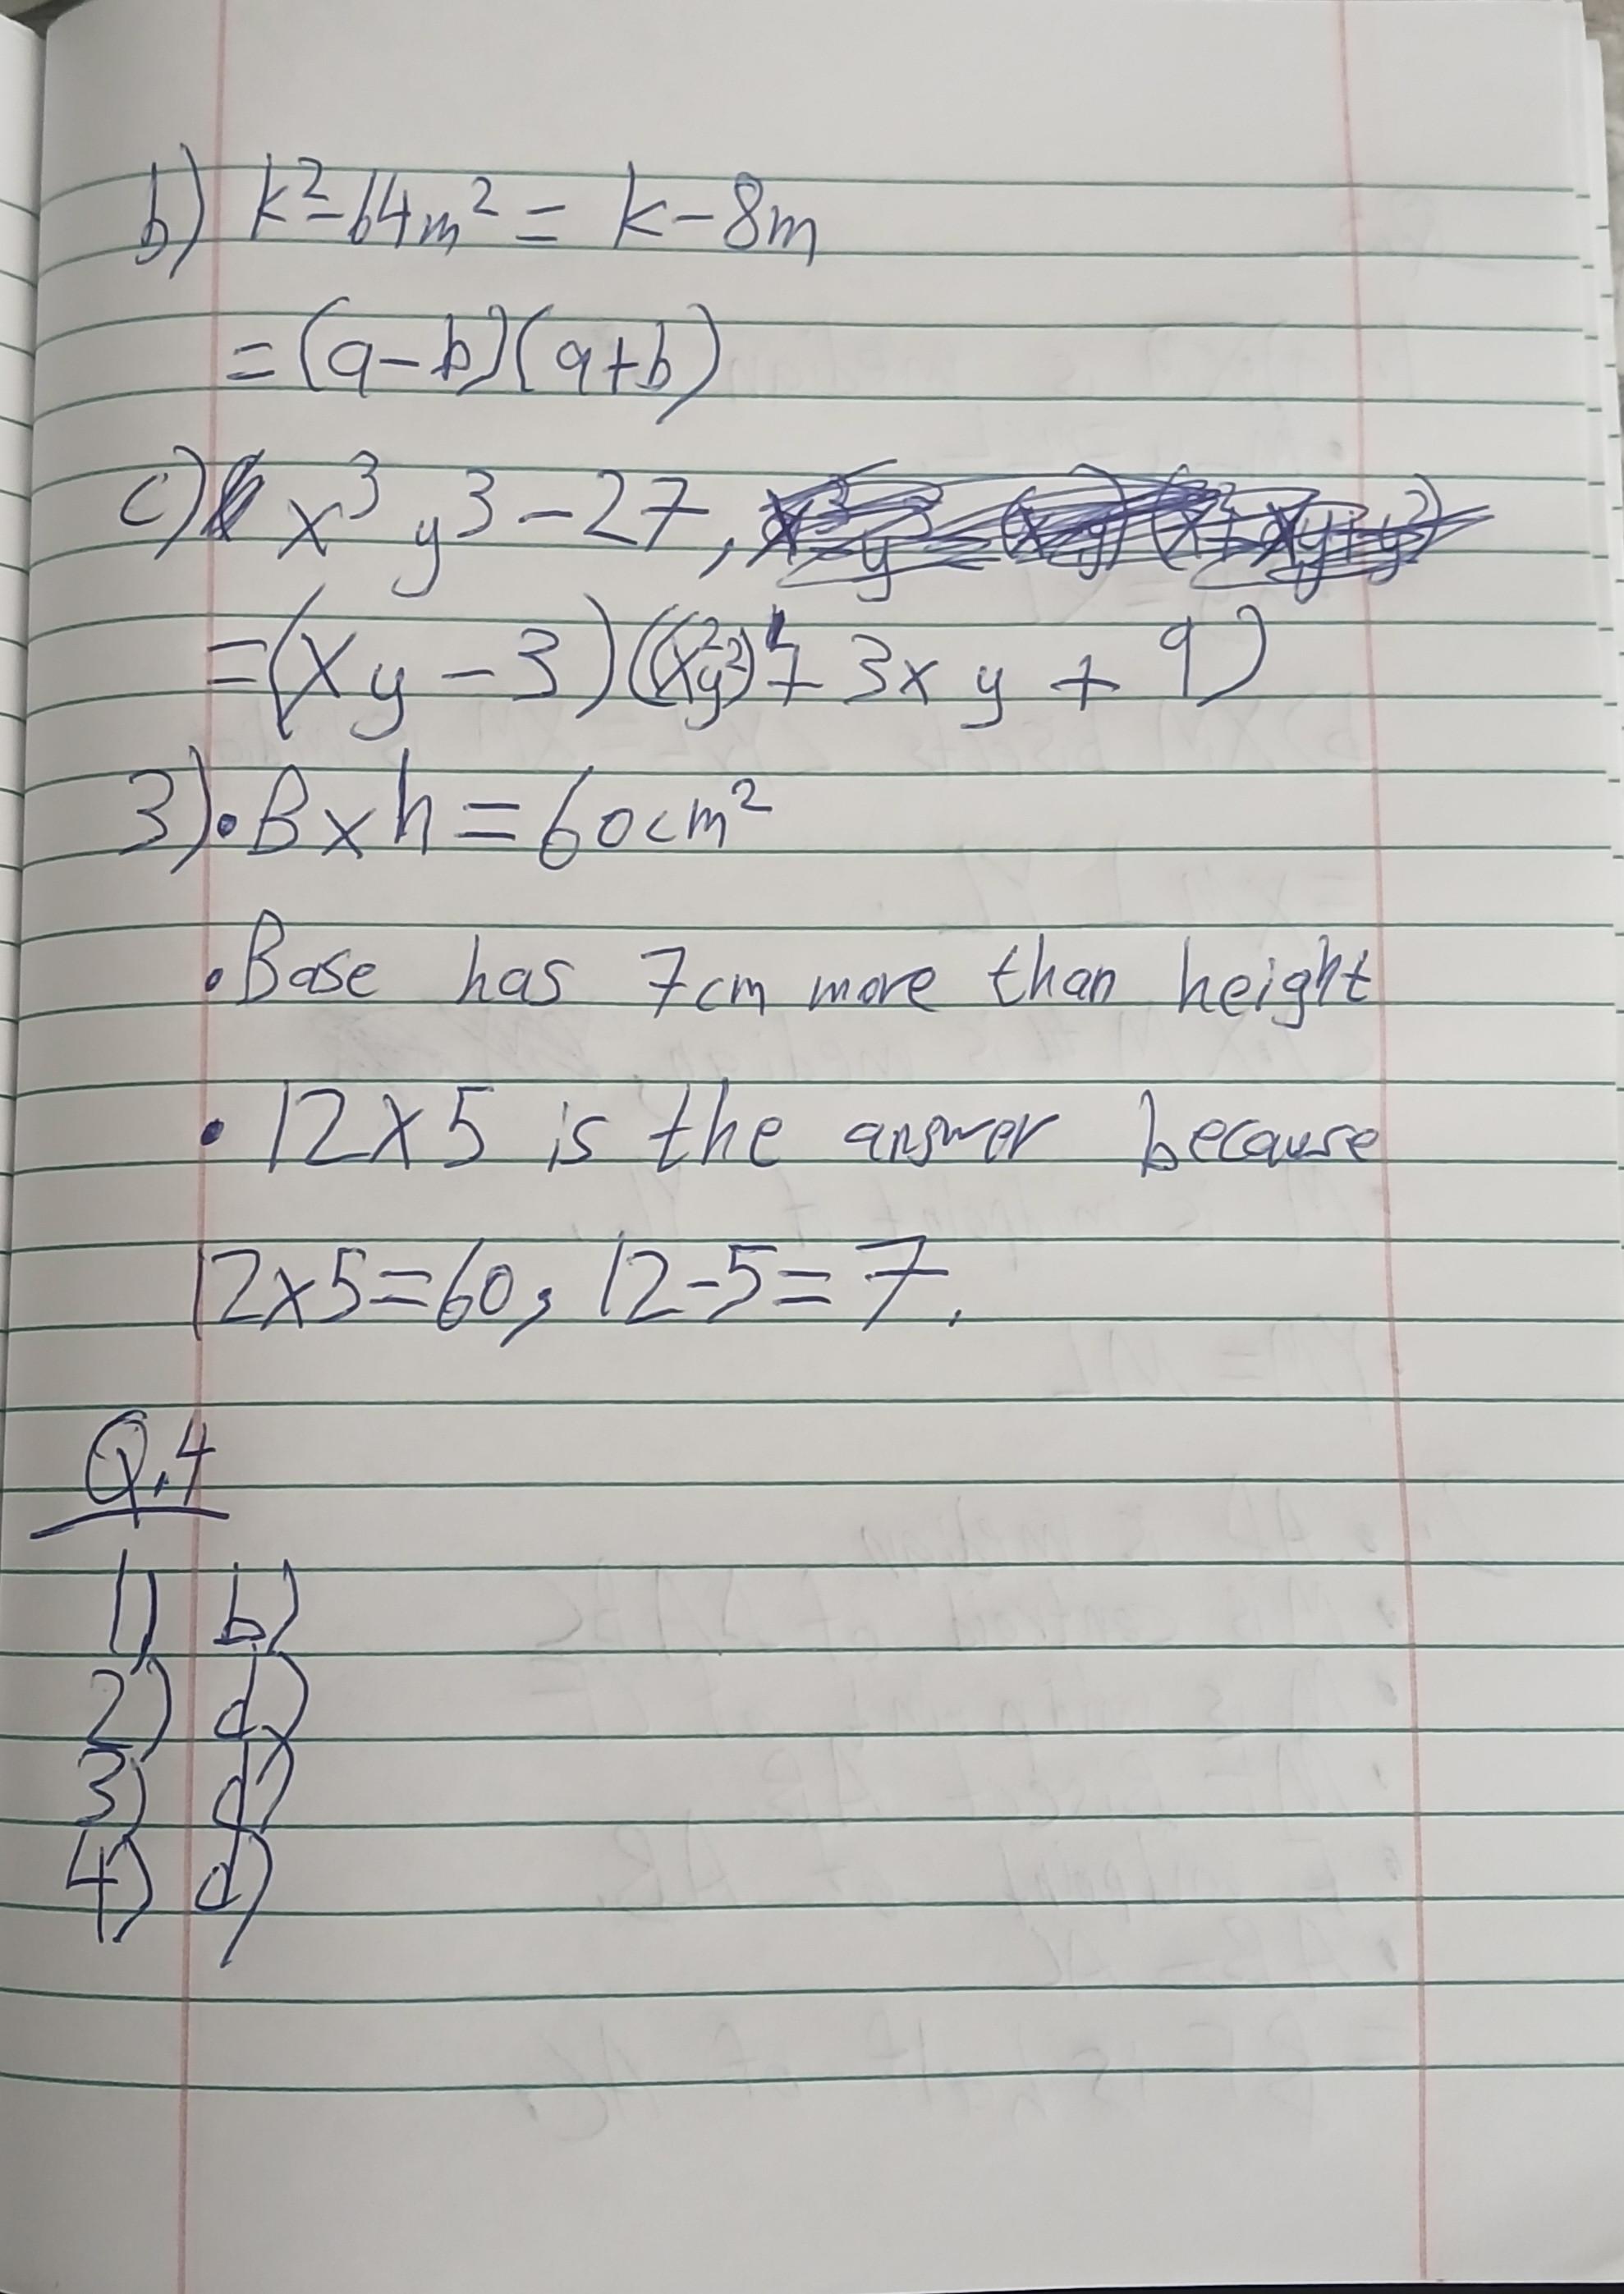 b) k²-64m² = k-8m
=(a-b)(a+b)
c) x³y³-27,
=(xy-3)((x²y²)+3xy+9)
3)•B×h=60cm²
•Base has 7cm more than height
•12×5 is the answer because
12×5=60, 12-5=7.
Q.4
1) b)
2) d)
3) d)
4) d)